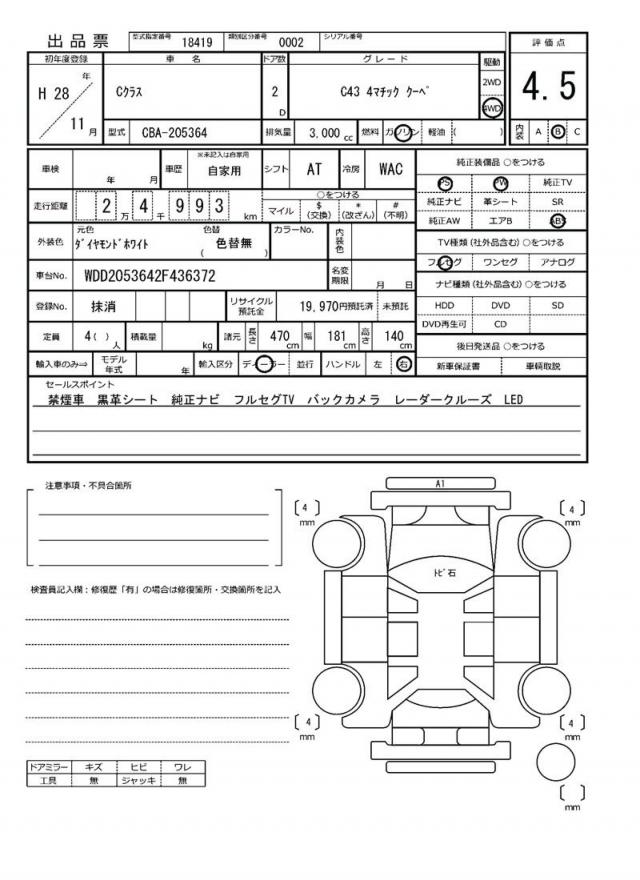 出品票 型式指定番号 18419 類別区分番号 0002 シリアル番号
初年度登録 車名 ドア数 グレード 駆動 評価点
H 28年 11月 Cクラス 2D C43 4マチック クーペ 2WD 4WD 4.5
型式 CBA-205364 排気量 3,000 cc 燃料 ガソリン 軽油 ( ) 内装 A B C
車検 年 月 車歴 ※未記入は自家用 自家用 シフト AT 冷房 WAC
純正装備品 ○をつける
PS PW 純正TV
走行距離 2万4千993km ○をつける
マイル $(交換) *(改ざん) #(不明)
純正ナビ 革シート SR
純正AW エアB ABS
外装色 元色 ダイヤモンドホワイト 色替 (色替無) カラーNo. 内装色
TV種類(社外品含む)○をつける
フルセグ ワンセグ アナログ
車台No. WDD2053642F436372 名変期限 月 日
ナビ種類(社外品含む)○をつける
登録No. 抹消 リサイクル預託金 19,970円預託済 未預託
HDD DVD SD
DVD再生可 CD
定員 4( )人 積載量 kg 諸元 長さ 470cm 幅 181cm 高さ 140cm
後日発送品 ○をつける
輸入車のみ⇒ モデル年式 年 輸入区分 ディーラー 並行 ハンドル 左 右
新車保証書 車輌取説
セールスポイント
禁煙車 黒革シート 純正ナビ フルセグTV バックカメラ レーダークルーズ LED
注意事項・不具合箇所
A1
[4]mm [4]mm
トビ石
検査員記入欄:修復歴「有」の場合は修復箇所・交換箇所を記入
[4]mm [4]mm
ドアミラー キズ ヒビ ワレ
工具 無 ジャッキ 無
[ ]mm